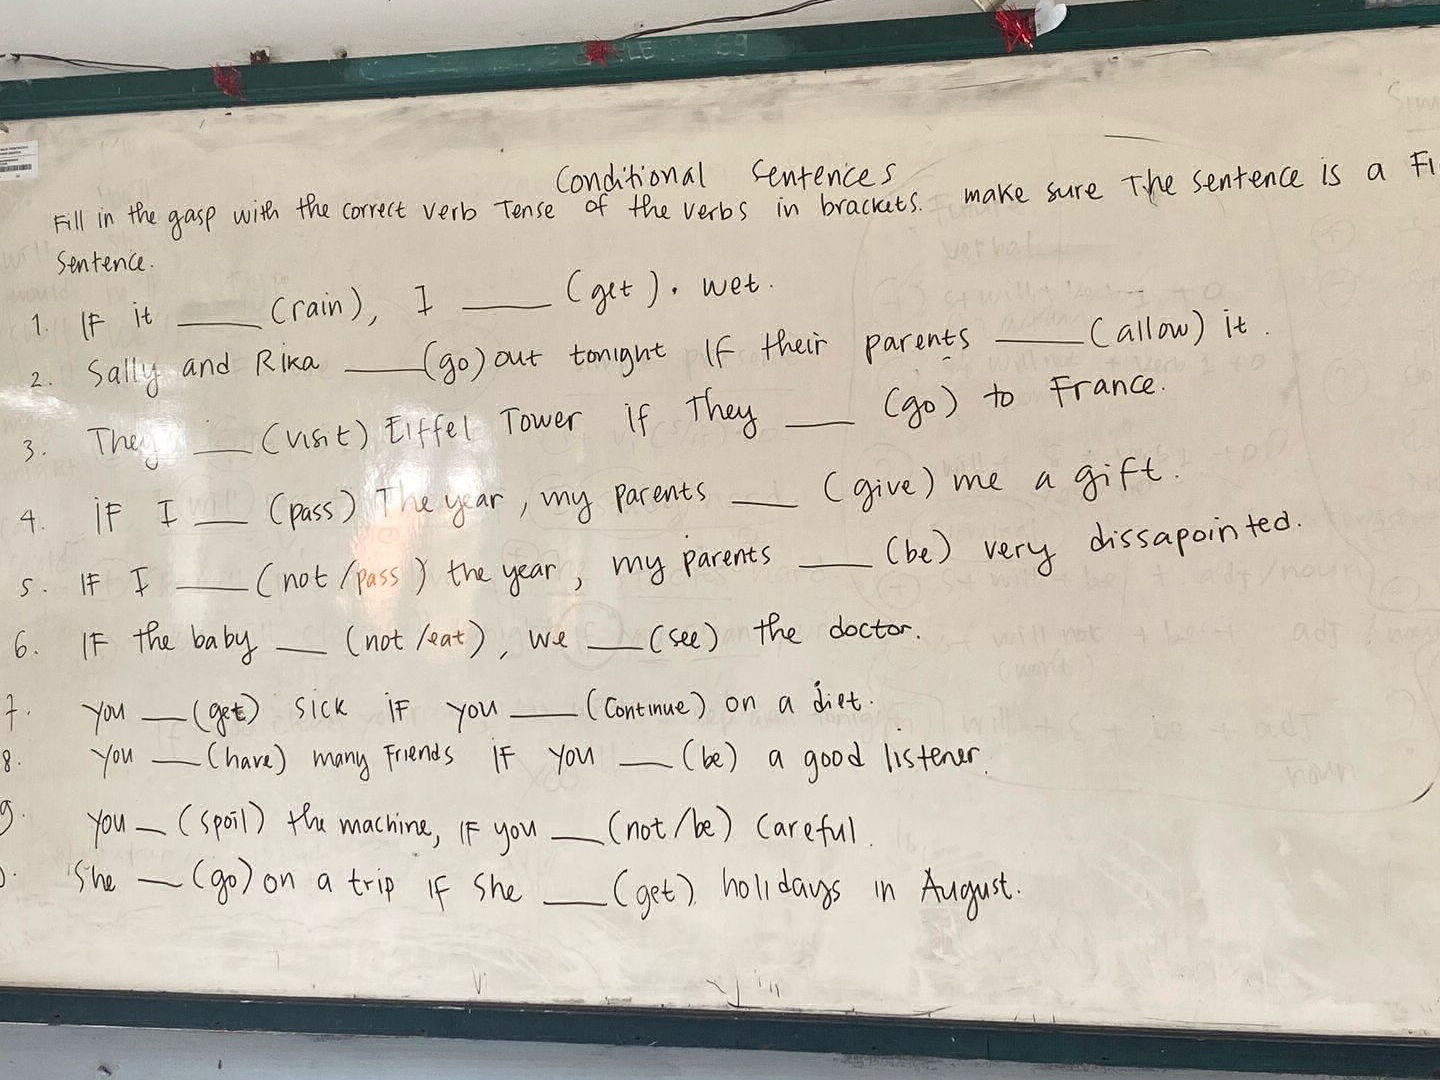 Conditional Sentences
Fill in the gasp with the correct verb Tense of the verbs in brackets. make sure The sentence is a Fi
Sentence.
1. IF it ____ (rain), I ____ (get). wet.
2. Sally and Rika ____ (go) out tonight IF their parents ____ (allow) it.
3. They ____ (visit) Eiffel Tower if They ____ (go) to France.
4. IF I ____ (pass) The year, my parents ____ (give) me a gift.
5. IF I ____ (not/pass) the year, my parents ____ (be) very dissapointed.
6. IF the baby ____ (not/eat), we ____ (see) the doctor.
7. you ____ (get) sick iF you ____ (Continue) on a diet.
8. you ____ (have) many Friends iF you ____ (be) a good listener.
9. you ____ (spoil) the machine, IF you ____ (not/be) Careful.
She ____ (go) on a trip IF She ____ (get) holidays in August.